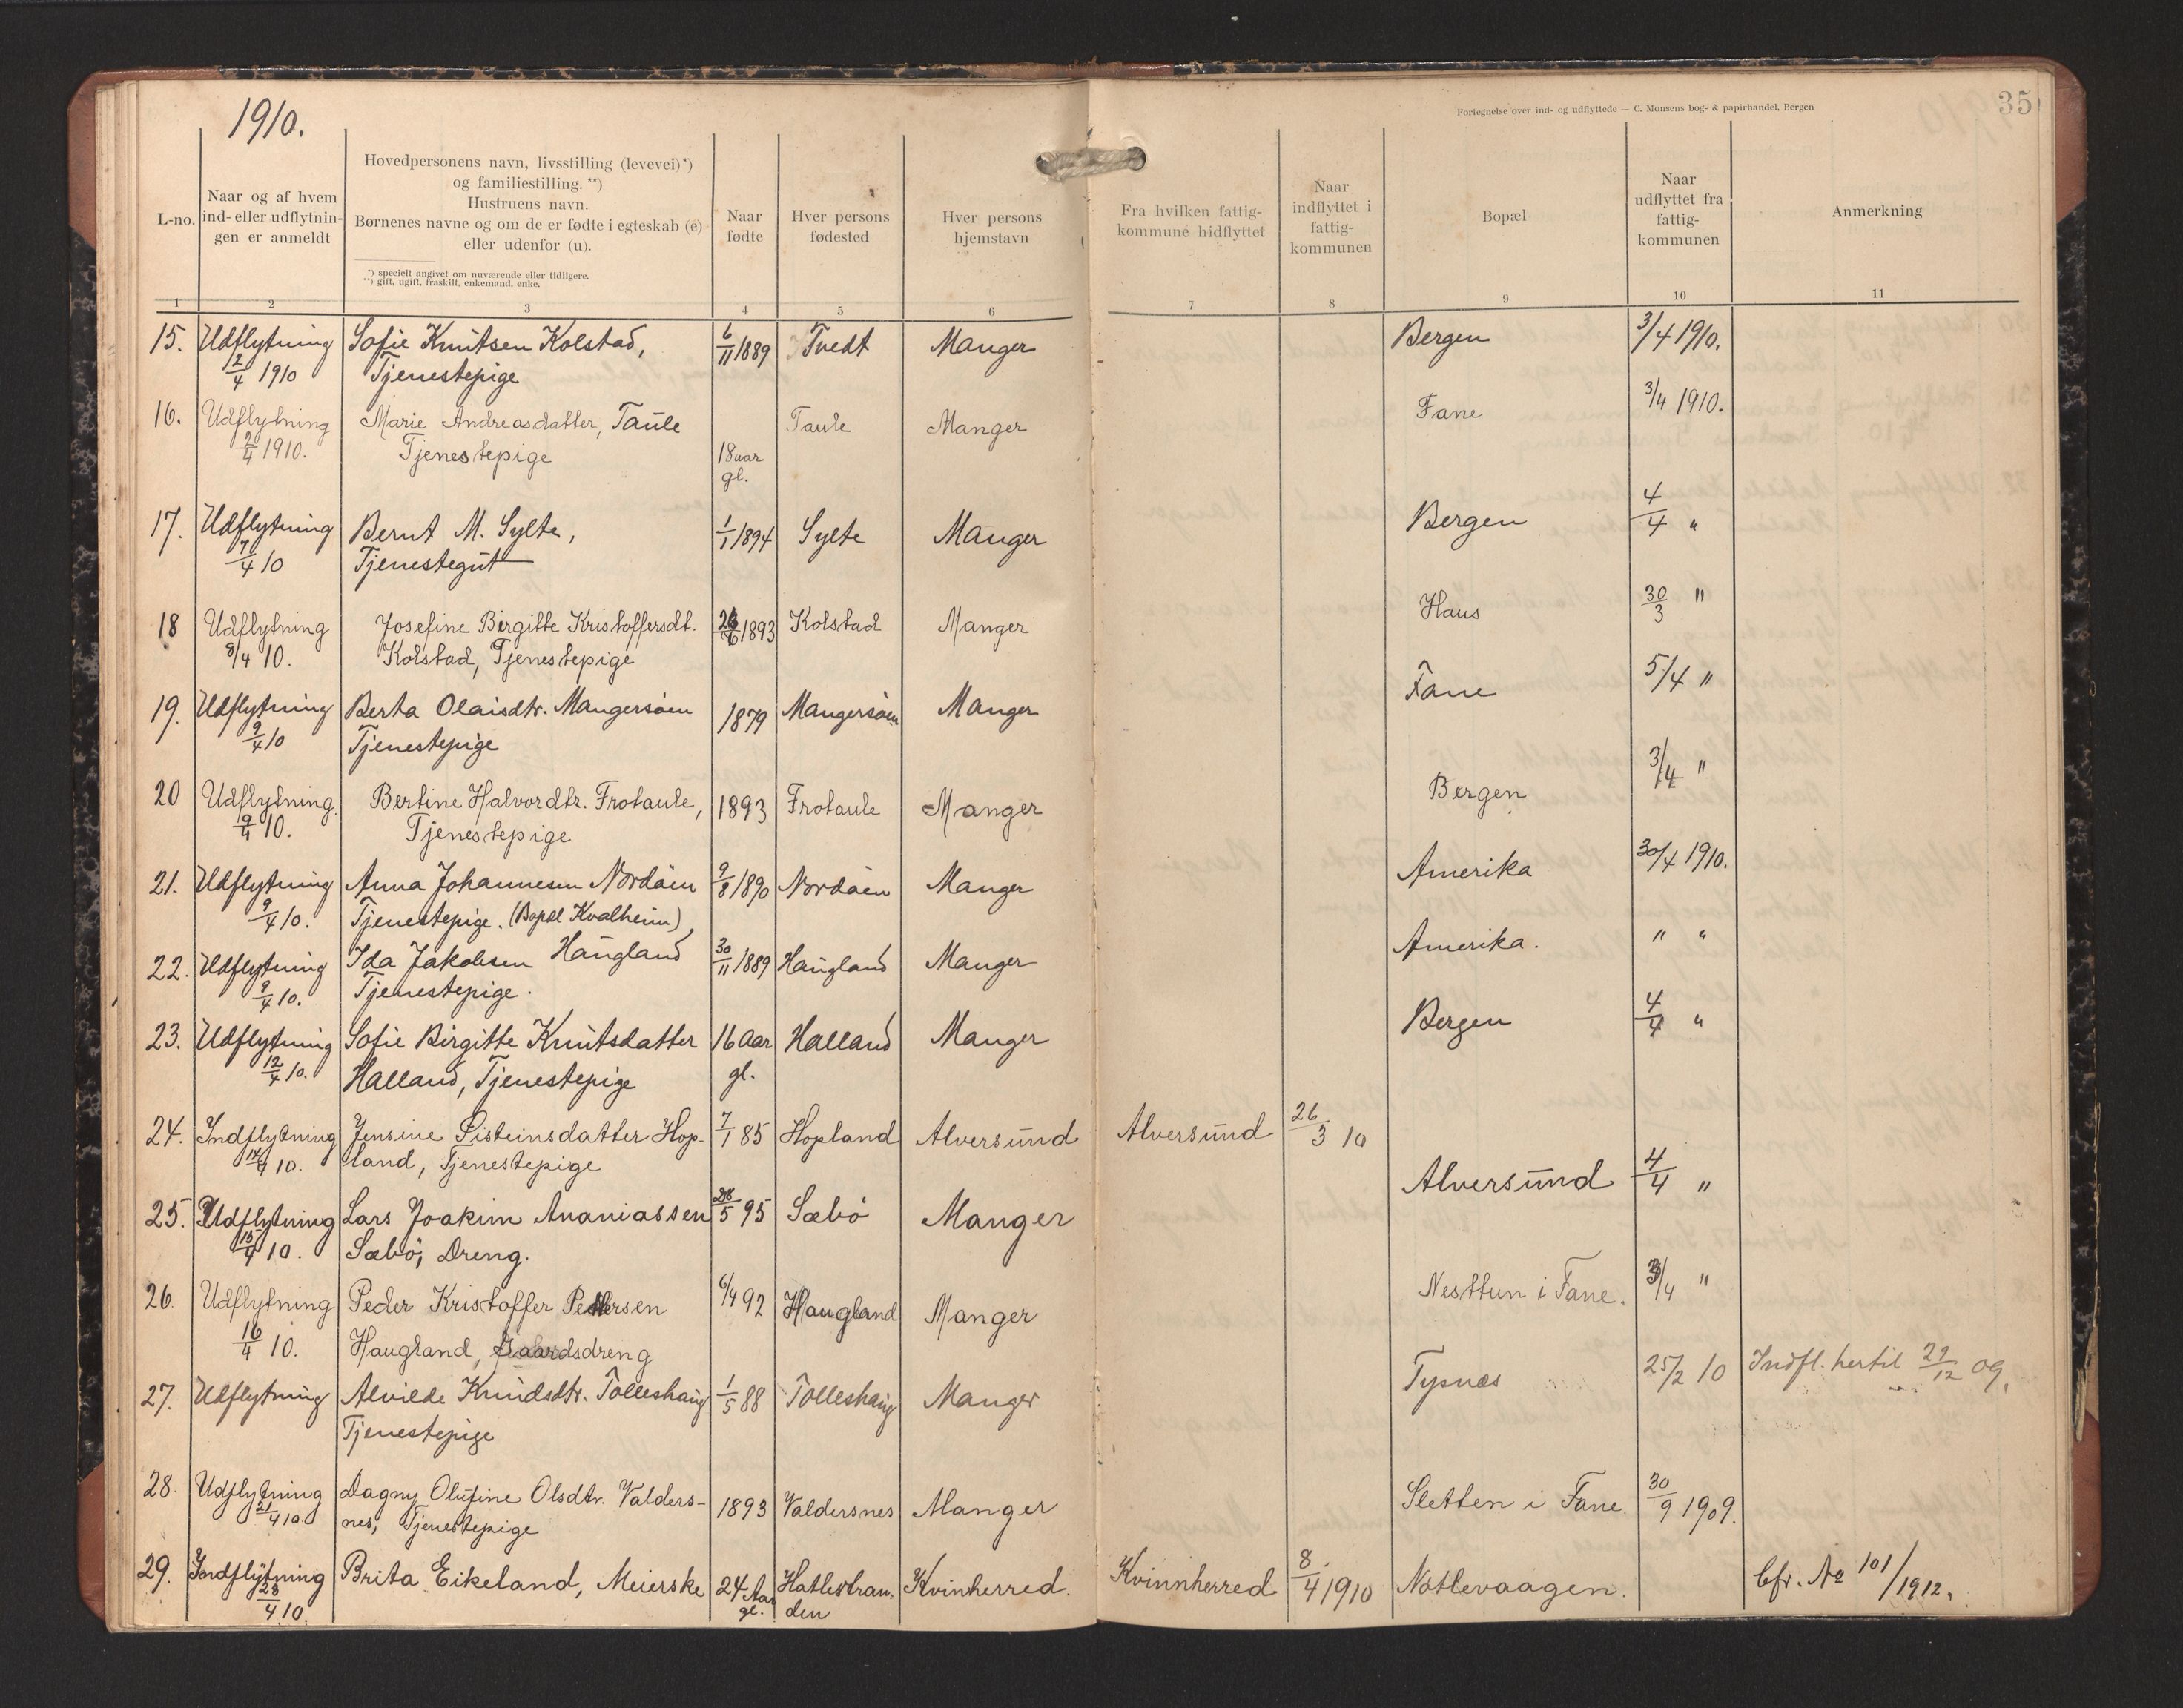 1910.
Fortegnelse over ind- og udflyttede — C. Monsens bog- & papirhandel, Bergen
35
L-no.
Naar og af hvem
ind- eller udflytnin-
gen er anmeldt
Hovedpersonens navn, livsstilling (levevei)*)
og familiestilling. **)
Hustruens navn.
Børnenes navne og om de er fødte i egteskab (e)
eller udenfor (u).
*) specielt angivet om nuværende eller tidligere.
**) gift, ugift, fraskilt, enkemand, enke.
Naar
fødte
Hver persons
fødested
Hver persons
hjemstavn
Fra hvilken fattig-
kommune hidflyttet
Naar
indflyttet i
fattig-
kommunen
Bopæl
Naar
udflyttet fra
fattig-
kommunen
Anmerkning
1 2 3 4 5 6 7 8 9 10 11
15. Udflytning Sofie Knutsen Kolstad, 6/11 1889 Tvedt Manger Bergen 3/4 1910.
2/4 1910 Tjenestepige
16. Udflytning Marie Andreasdatter, Taule Taule Manger Fane 3/4 1910.
2/4 1910. Tjenestepige 18 aar
gl.
17. Udflytning Bernt M. Sylte, 1/1 1894 Sylte Manger Bergen 4/4 "
7/4 10 Tjenestegut
18 Udflytning Josefine Birgitte Kristoffersdt. 26/6 1893 Kolstad Manger Haus 30/3 "
8/4 10. Kolstad, Tjenestepige
19. Udflytning Berta Olaisdtr. Mangersöen 1879 Mangersöen Manger Fane 5/4 "
9/4 10 Tjenestepige
20 Udflytning Bertine Halvordtr. Frotaule, 1893 Frotaule Manger Bergen 3/4 "
9/4 10. Tjenestepige
21. Udflytning Anna Johannesen Nordöen 9/8 1890 Nordöen Manger Amerika 30/4 1910.
9/4 10. Tjenestepige. (Bopæl Kvalheim)
22. Udflytning Ida Jakobsen Haugland 30/11 1889 Haugland Manger Amerika. " "
9/4 10. Tjenestepige.
23. Udflytning Sofie Birgitte Knutsdatter 16 Aar Halland Manger Bergen 4/4 "
12/4 10. Halland, Tjenestepige gl.
24. Indflytning Jensine Sisteinsdatter Hop- 7/1 85 Hopland Alversund Alversund 26/3 10
14/4 10. land, Tjenestepige
25. Udflytning Lars Joakim Ananiassen 28/5 95 Sæbö Manger Alversund 4/4 "
15/4 10. Sæbö, Dreng.
26. Udflytning Peder Kristoffer Pedersen 6/4 92 Haugland Manger Nesttun i Fane. 3/4 "
16/4 10. Haugland, Gaardsdreng
27. Udflytning Alvilde Knudsdtr. Tolleshaug 1/5 88 Tolleshaug Manger Tysnæs 25/2 10 Indfl. hertil 29/12 09.
Tjenestepige
28. Udflytning Dagny Olufine Olsdtr. Valders- 1893 Valdersnes Manger Sletten i Fane. 30/9 1909.
21/4 10 nes, Tjenestepige
29. Indflytning Brita Eikeland, Meierske 24 Aar Hatlestran- Kvinherred. Kvinnherred 8/4 1910 Nötlevaagen. Cfr. No 101/1912.
23/4 10. gl. den